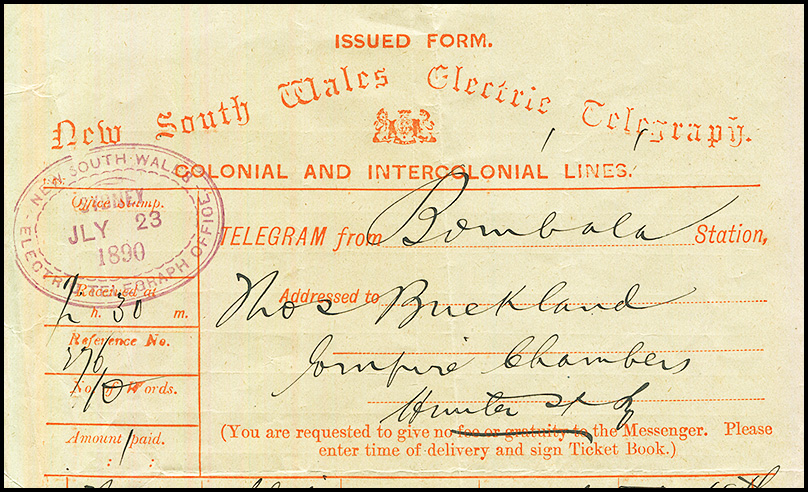 ISSUED FORM.
New South Wales Electric Telegraph.
COLONIAL AND INTERCOLONIAL LINES.
NEW SOUTH WALES
ELECTRIC TELEGRAPH OFFICE
SYDNEY
JLY 23
1890
Office Stamp.
TELEGRAM from Bombala Station,
Received at
h. 30 m.
Addressed to Thos Buckland
Reference No.
276
Empire Chambers
No. of Words.
10
Hunter St
Amount paid.
: :
(You are requested to give no fee or gratuity to the Messenger. Please
enter time of delivery and sign Ticket Book.)